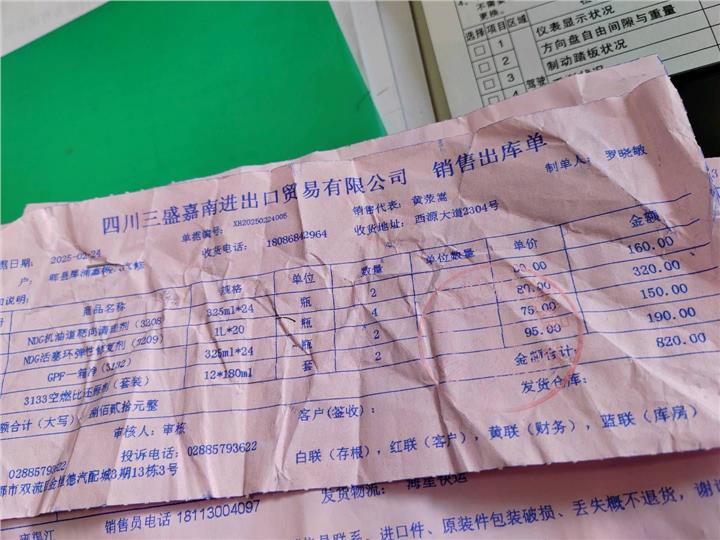 不需
更换。
选择 项目 区域
1 仪表显示状况
2 方向盘自由间隙与重量
3 制动踏板状况
4 驾驶
四川三盛嘉南进出口贸易有限公司 销售出库单
制单人: 罗晓敏
单据编号: XH20250224005 销售代表: 黄荥嵩
日期: 2025-02-24 收货电话: 18086842964 收货地址: 西源大道2304号
户:
说明:
商品名称 规格 单位 数量 单位数量 单价 金额
NDG机油道靶向清洁剂(3208) 325ml*24 瓶 2 80.00 160.00
NDG活塞环弹性修复剂(3209) 1L*20 瓶 4 80.00 320.00
GPF一箱净(3192) 325ml*24 瓶 2 75.00 150.00
3133空燃比还原剂(套装) 12*180ml 套 2 95.00 190.00
额合计(大写): 捌佰贰拾元整 金额合计 820.00
审核人: 审核 客户(签收): 发货仓库:
02885793622 投诉电话: 02885793622 白联(存根), 红联(客户), 黄联(财务), 蓝联(库房)
都市双流区金恒德汽配城3期13栋3号
发货物流: 海星快运
销售员电话 18113004097
联系、进口件、原装件包装破损、丢失概不退货,谢